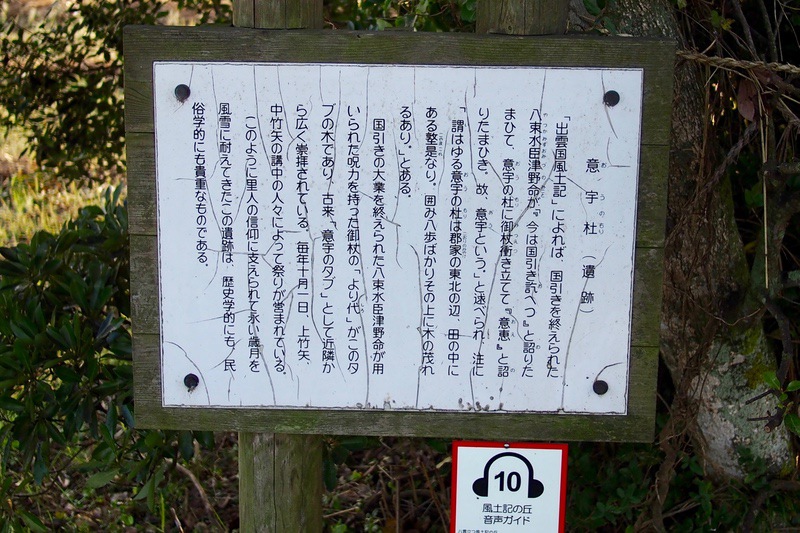 意宇杜（遺跡）
おうのもり
「出雲国風土記」によれば、国引きを終えられた
八束水臣津野命が『今は国引き訖へつ』と詔りた
まひて、意宇の杜に御杖衝き立てて『意恵』と詔
りたまひき、故、意宇という。」と述べられ、注に
「謂はゆる意宇の杜は郡家の東北の辺、田の中に
ある塾是なり。囲み八歩ばかりその上に木の茂れ
るあり。」とある。
国引きの大業を終えられた八束水臣津野命が用
いられた呪力を持った御杖の「より代」がこのタ
ブの木であり、古来、「意宇のタブ」として近隣か
ら広く崇拝されている。毎年十月一日、上竹矢、
中竹矢の講中の人々によって祭りが営まれている。
このように里人の信仰に支えられて永い歳月を
風雪に耐えてきたこの遺跡は、歴史学的にも、民
俗学的にも貴重なものである。
10
風土記の丘
音声ガイド